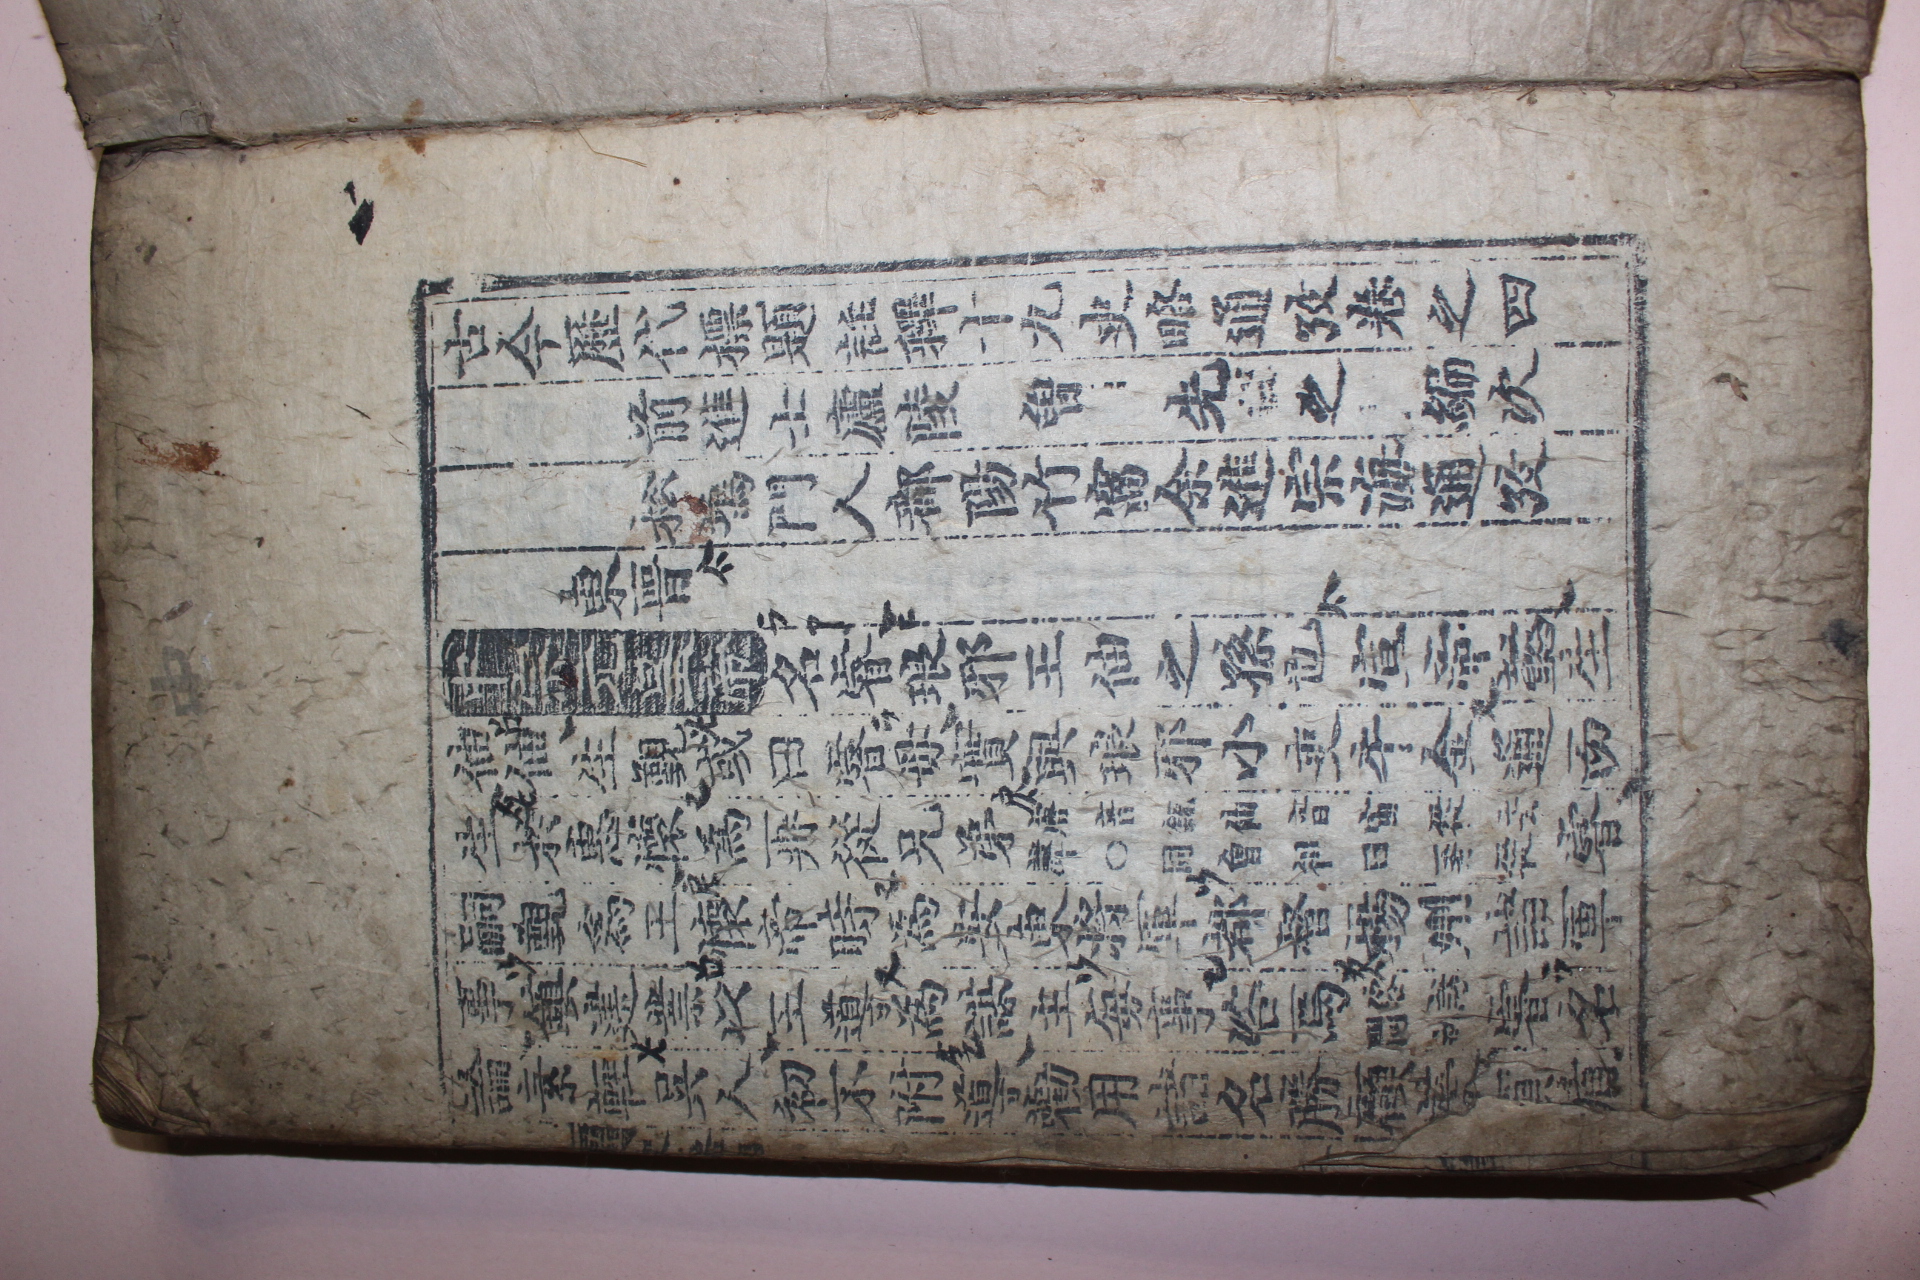 古今歷代標題註釋十九史略通攷卷之四
前進士廬陵 曾 先之 編次
松塢門人鄱陽竹窩余進宗海通攷
東晉
中宗元皇帝名睿琅邪王伷之孫也宣帝懿生
伷伷生覲或曰睿母實與琅邪小吏牛金通而
生於惠懷爲再從兄弟
嗣覲爲王懷帝時爲安東將軍都督揚州諸軍
事鎭建業以王導爲謀主每事咨焉 睿名
論素輕吳人初不附導勸用諸名勝顧榮賀循